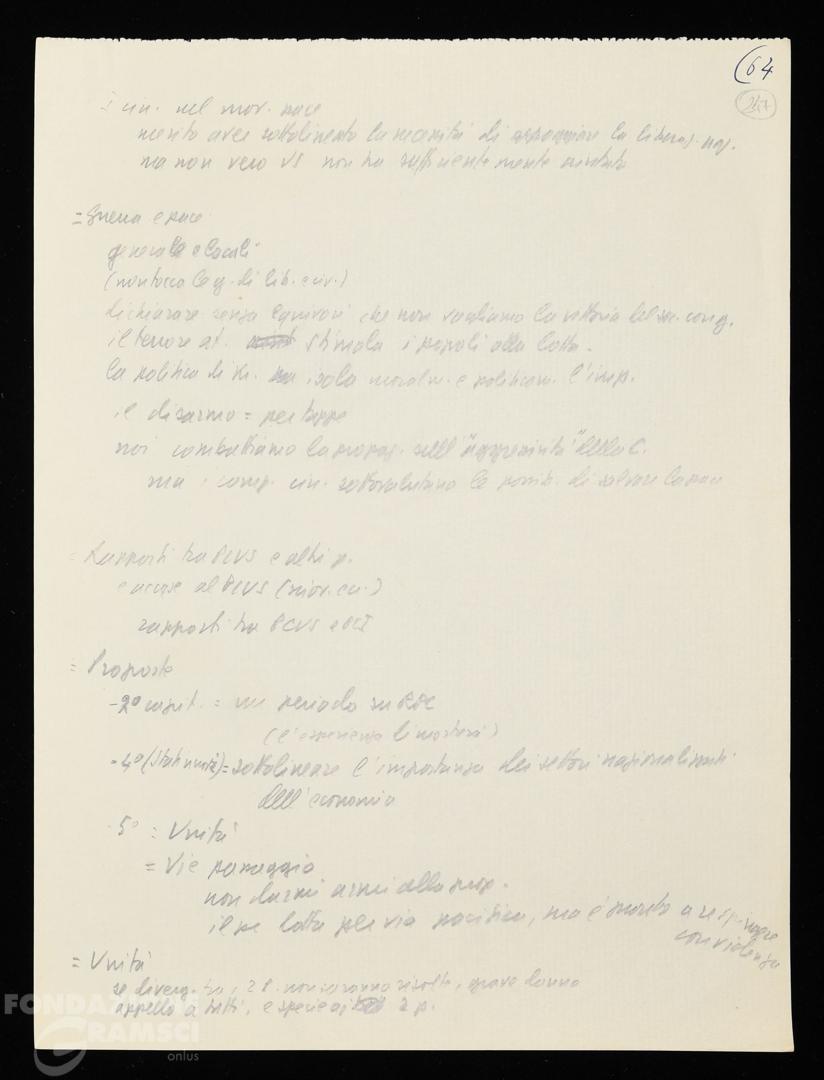 64
247
i cin. nel mov. pace
merito aver sottolineato la necessità di appoggiare la liberaz. naz.
ma non vero VS non ha sufficientemente aiutato
= Guerra e pace
generale e locali
(non tocca le g. di lib. e civ.)
dichiarare senza equivoci che non vogliamo la vittoria del soc. con g.
il terrore at. stimola i popoli alla lotta.
la politica di K. isola moralm. e politicam. l'imp.
il disarmo = per tappe
noi combattiamo la propag. sull' "aggressività" della C.
ma i comp. cin. sottovalutano le possib. di salvare la pace
= Rapporti tra PCUS e altri p.
e accuse al PCUS (
rapporti tra PCUS e PCI
= Proposte
- 2° capit. = un periodo su RPC
(l'esperienza li mostrerà)
- 4° (Stati unità) = sottolineare l'importanza dei settori nazionalizzati
dell'economia
- 5° = Unità
= Vie passaggio
non darmi armi alla prop.
il pc lotta per via pacifica, ma è pronto a respingere
con violenza
= Unità
se diverg. tra i 2 P. non saranno risolte, grave danno
appello a tutti, e specie ai 2 p.
FONDAZIONE
GRAMSCI
onlus